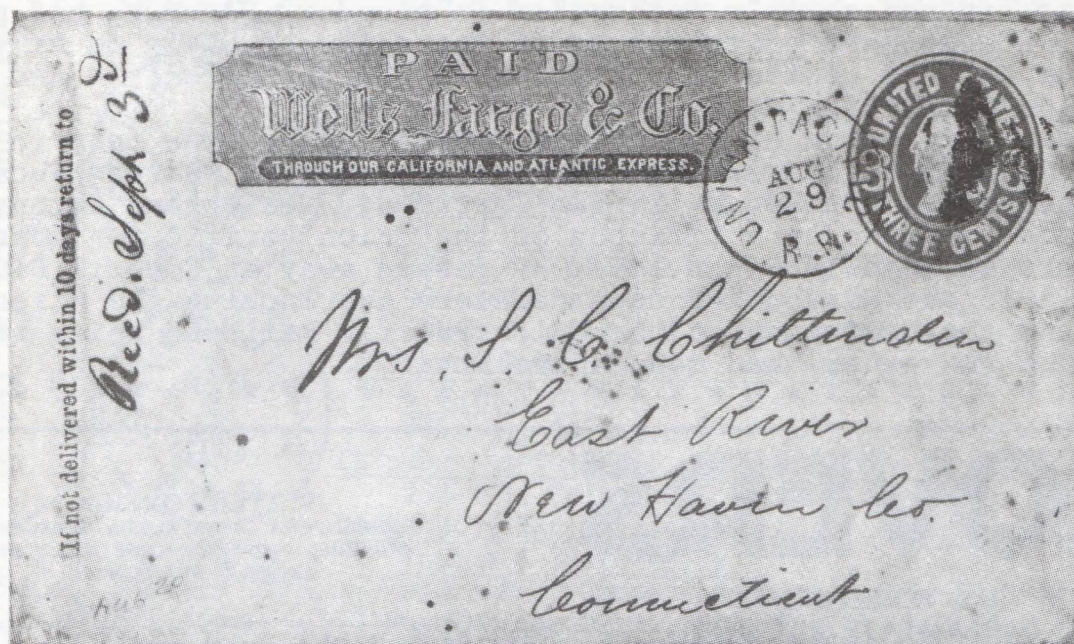 If not delivered within 10 days return to
Recd. Sept 3d
PAID
Wells Fargo & Co.
THROUGH OUR CALIFORNIA AND ATLANTIC EXPRESS.
UNION PACIFIC R.R.
AUG
29
UNITED STATES
3 3
THREE CENTS
Mrs. S. C. Chittenden
East River
New Haven Co.
Connecticut